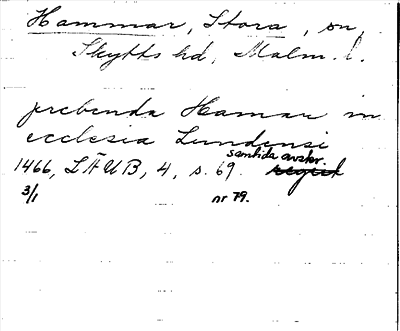 Hammar, Stora, sn,
Skytts hd, Malm. l.
prebenda Hamar in
ecclesia Lundensi
samtida avskr.
1466, LÄUB, 4, s. 69.
3/1 nr 79.